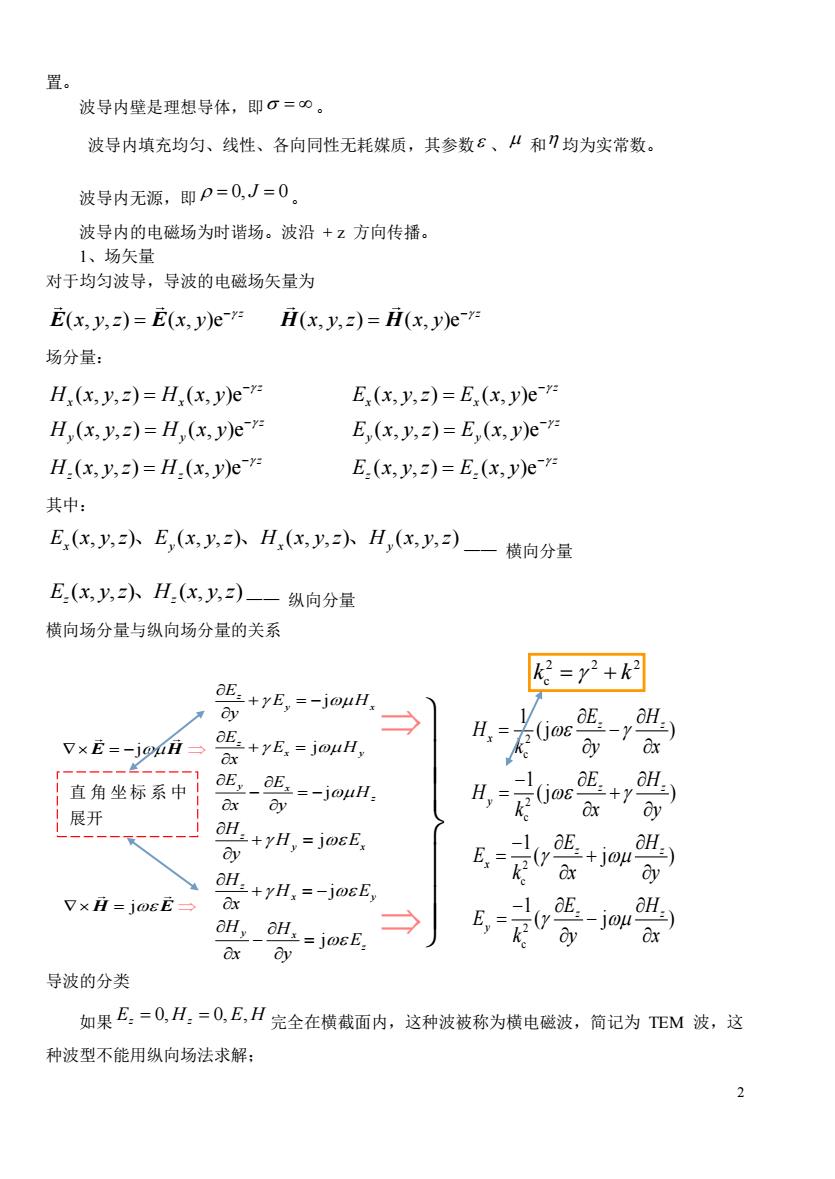 置。
波导内壁是理想导体，即 σ = ∞ 。
波导内填充均匀、线性、各向同性无耗媒质，其参数 ε 、μ 和 η 均为实常数。
波导内无源，即 ρ = 0, J = 0 。
波导内的电磁场为时谐场。波沿 + z 方向传播。
1、场矢量
对于均匀波导，导波的电磁场矢量为
E⃗(x, y, z) = E⃗(x, y)e^{−γz} H⃗(x, y, z) = H⃗(x, y)e^{−γz}
场分量：
H_x(x, y, z) = H_x(x, y)e^{−γz} E_x(x, y, z) = E_x(x, y)e^{−γz}
H_y(x, y, z) = H_y(x, y)e^{−γz} E_y(x, y, z) = E_y(x, y)e^{−γz}
H_z(x, y, z) = H_z(x, y)e^{−γz} E_z(x, y, z) = E_z(x, y)e^{−γz}
其中：
E_x(x, y, z)、E_y(x, y, z)、H_x(x, y, z)、H_y(x, y, z) —— 横向分量
E_z(x, y, z)、H_z(x, y, z) —— 纵向分量
横向场分量与纵向场分量的关系
k_c^2 = γ^2 + k^2
∇×E⃗ = −jωμH⃗ ⇒
直角坐标系中
展开
∇×H⃗ = jωεE⃗ ⇒
∂E_z/∂y + γE_y = −jωμH_x
∂E_z/∂x + γE_x = jωμH_y
∂E_y/∂x − ∂E_x/∂y = −jωμH_z
∂H_z/∂y + γH_y = jωεE_x
∂H_z/∂x + γH_x = −jωεE_y
∂H_y/∂x − ∂H_x/∂y = jωεE_z
⇒
⇒
H_x = 1/k_c^2 (jωε ∂E_z/∂y − γ ∂H_z/∂x)
H_y = −1/k_c^2 (jωε ∂E_z/∂x + γ ∂H_z/∂y)
E_x = −1/k_c^2 (γ ∂E_z/∂x + jωμ ∂H_z/∂y)
E_y = −1/k_c^2 (γ ∂E_z/∂y − jωμ ∂H_z/∂x)
导波的分类
如果 E_z = 0, H_z = 0, E, H 完全在横截面内，这种波被称为横电磁波，简记为 TEM 波，这
种波型不能用纵向场法求解；
2